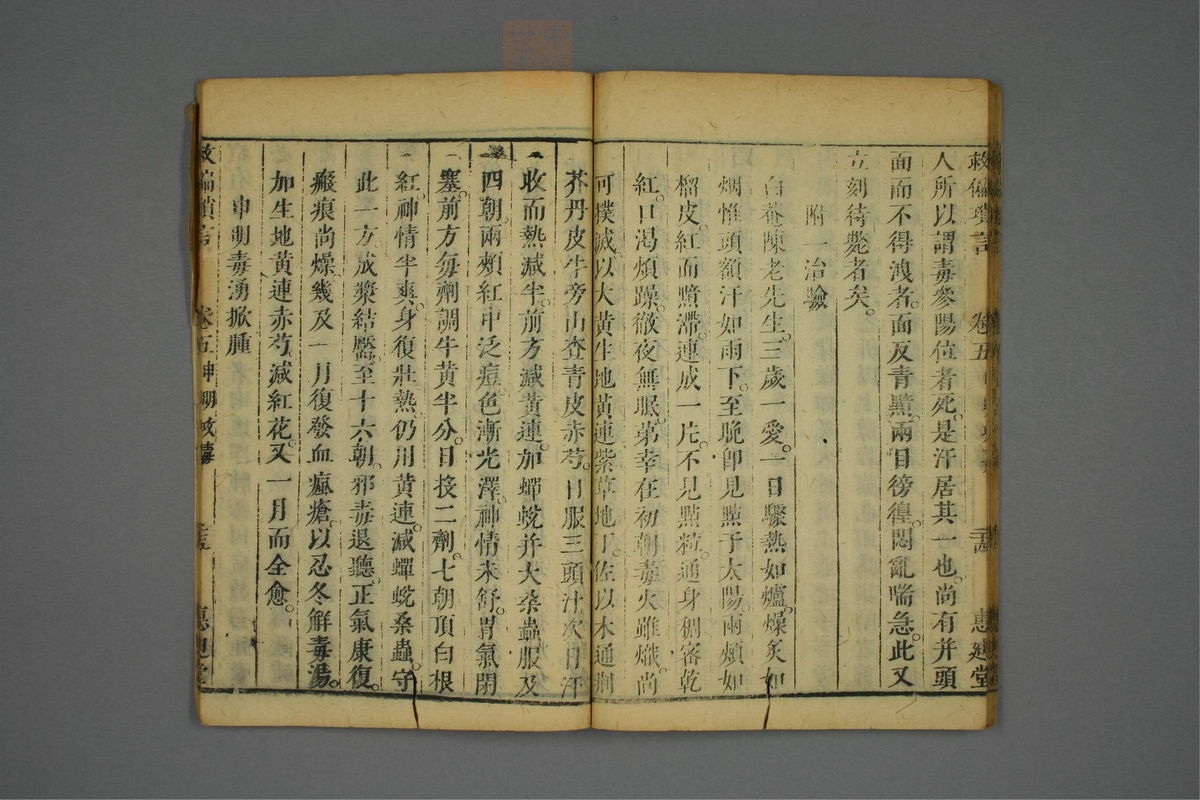 救偏瑣言 卷五 惠迪堂
人所以謂毒參陽位者死。是汗居其一也。尚有并頭
面而不得洩者。面反青黯。兩目徬徨。悶亂喘急。此又
立刻待斃者矣。
附一治驗
白菴陳老先生。三歲一愛。一日驟熱如爐。燥炙如
烟。惟頭額汗如雨下。至晚卽見點于太陽。兩頰如
榴皮。紅而黯滯。連成一片。不見點粒。通身稠密乾
紅。口渴煩躁。徹夜無眠。第幸在初朝。毒火雖熾。尚
可撲滅。以大黃生地黃連紫草地丁。佐以木通荆
芥丹皮牛旁山查青皮赤芍。日服三頭汁。次日汗
收而熱減半。前方減黃連。加蟬蛻并大桑蟲。服及
四朝。兩頰紅中泛痘。色漸光澤。神情未舒。胃氣閉
塞。前方每劑調牛黃半分。日接二劑。七朝頂白根
紅。神情半爽。身復壯熱。仍用黃連。減蟬蛻桑蟲。守
此一方。成漿結靨。至十六朝。邪毒退聽。正氣康復。
瘢痕尚燥。幾及一月。復發血瘋瘡。以忍冬解毒湯。
加生地黃連赤芍。減紅花。又一月而全愈。
申明毒湧掀腫
救偏瑣言 卷五 申明 毒 惠迪堂